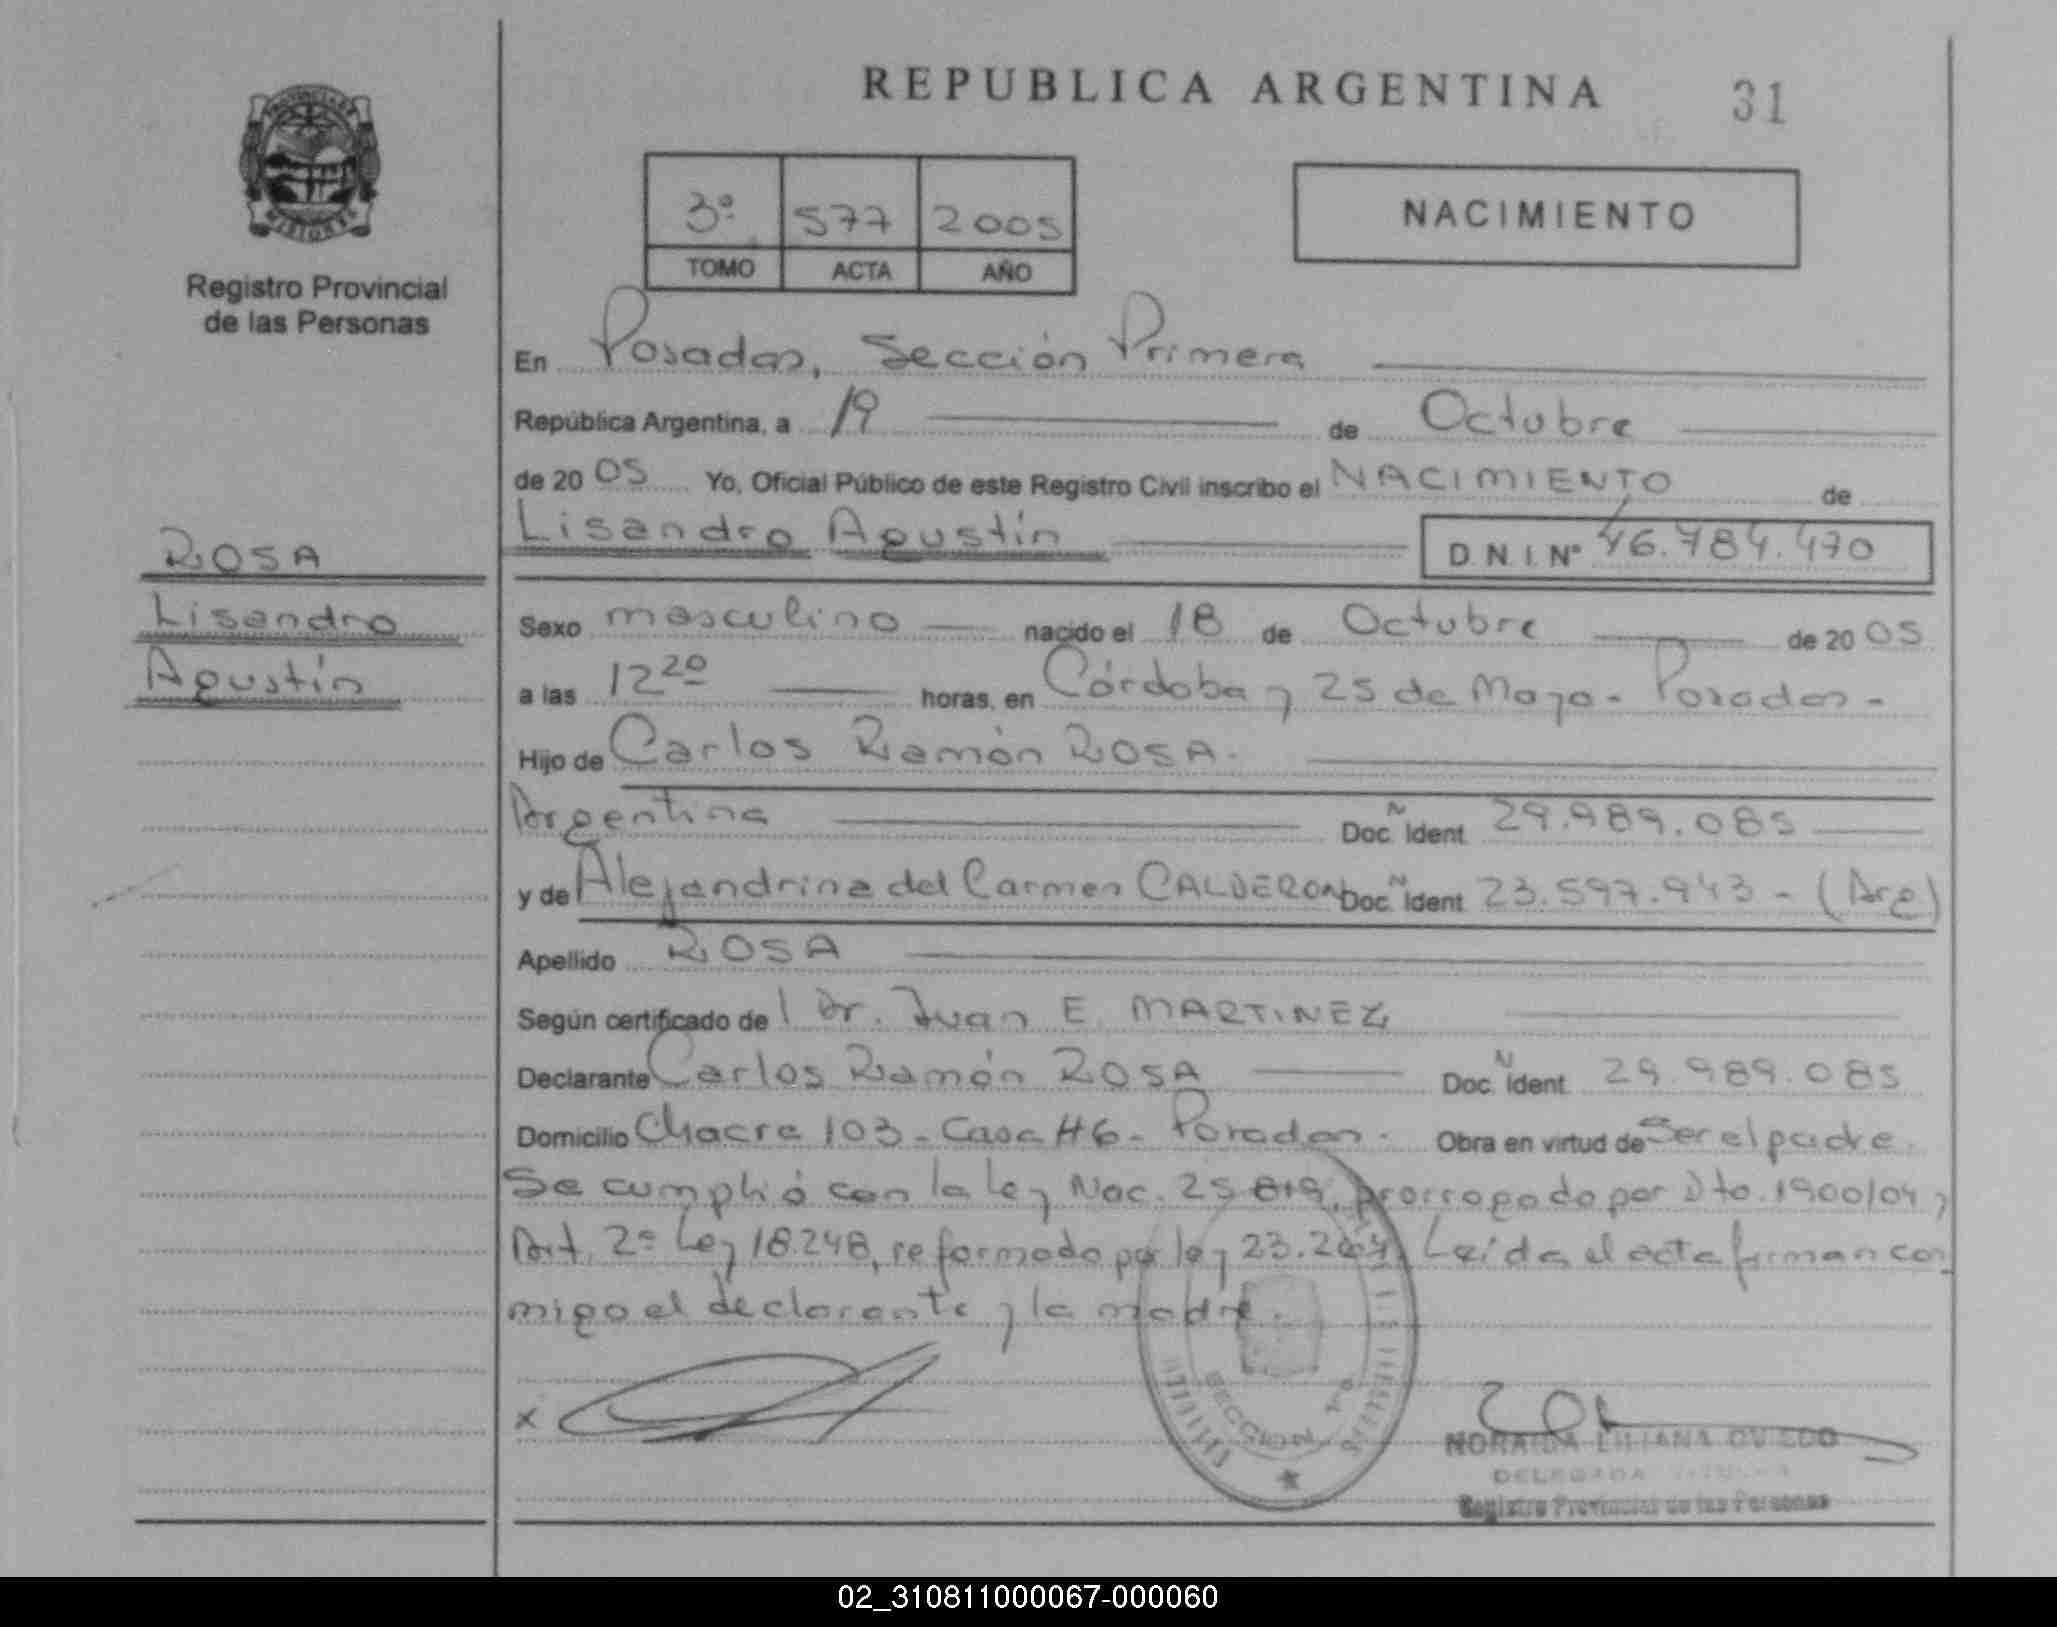 REPUBLICA ARGENTINA 31
PROVINCIA DE
MISIONES
Registro Provincial
de las Personas
3º 577 2005
TOMO ACTA AÑO
NACIMIENTO
En Posadas, Sección Primera
República Argentina, a 19 de Octubre
de 2005 Yo, Oficial Público de este Registro Civil inscribo el NACIMIENTO de
Lisandro Agustín D.N.I. Nº 46.784.470
ROSA
Lisandro
Agustín
Sexo masculino nacido el 18 de Octubre de 2005
a las 12 20 horas, en Córdoba y 25 de Mayo - Posadas -
Hijo de Carlos Ramón ROSA.
Argentina Doc. Ident. 29.989.085
y de Alejandrina del Carmen CALDERON Doc. Ident. 23.597.943 - (Arg)
Apellido ROSA
Según certificado de l Dr. Juan E. MARTINEZ
Declarante Carlos Ramón ROSA Doc. Ident. 29.989.085
Domicilio Chacra 103 - Casa 46 - Posadas. Obra en virtud de Ser el padre.
Se cumplió con la Ley Nac. 25.819, prorrogado por Dto. 1900/04 y
Art. 2º Ley 18.248, reformado por ley 23.264. Leída el acta firman con
migo el declarante y la madre.
x
SECCION 1ª
NORAIDA LILIANA OVIEDO
DELEGADA TITULAR
Registro Provincial de las Personas
02_310811000067-000060